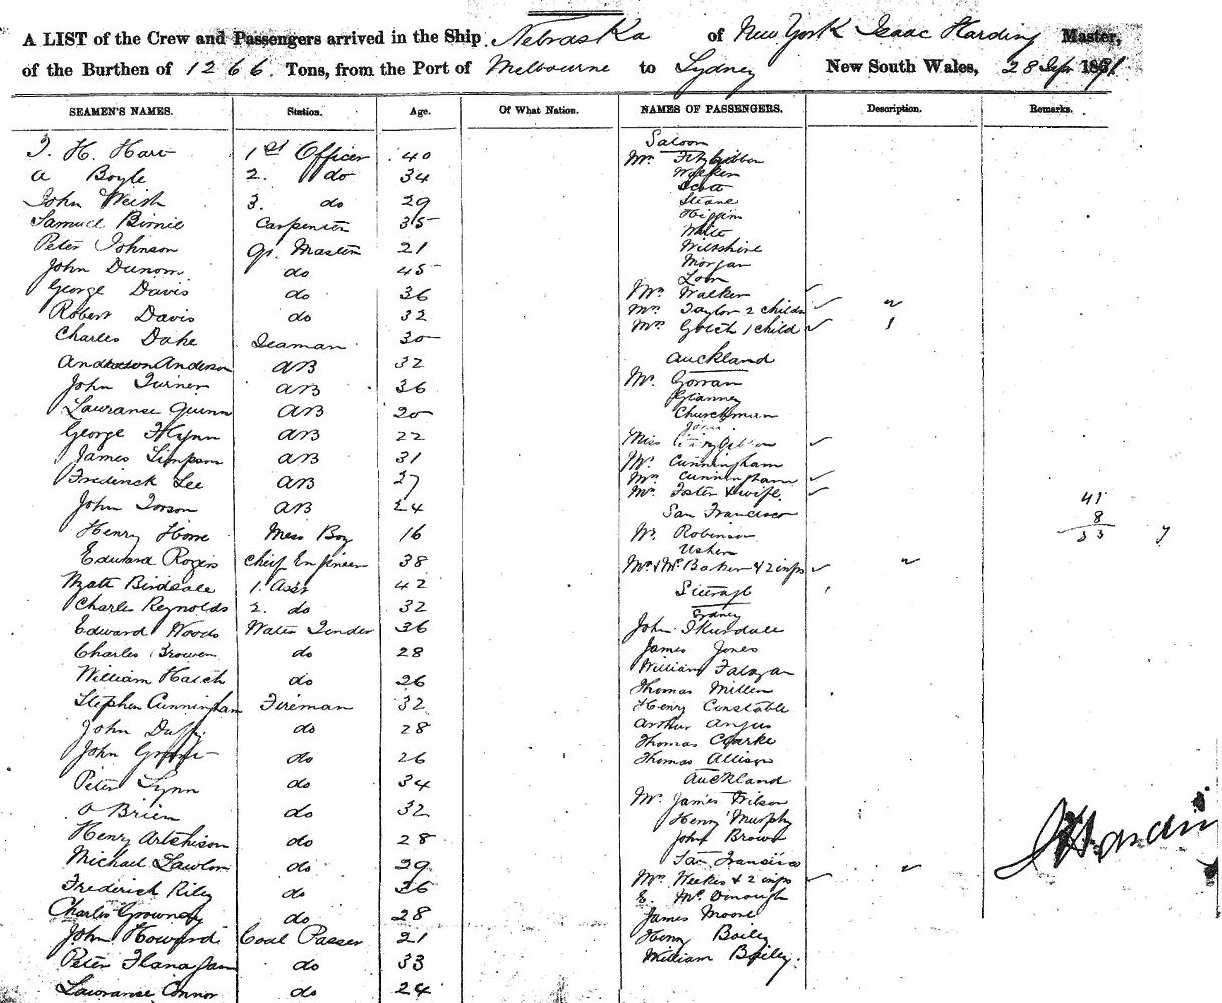 A LIST of the Crew and Passengers arrived in the Ship Nebraska of New York Isaac Harding Master,
of the Burthen of 1266 Tons, from the Port of Melbourne to Sydney New South Wales, 28 Sep 1871
SEAMEN'S NAMES. Station. Age. Of What Nation. NAMES OF PASSENGERS. Description. Remarks.
H. Hart 1st Officer 40
A Boyle 2. do 34
John Welsh 3. do 29
Samuel Birnie Carpenter 35
Peter Johnson Qr. Master 21
John do 45
George Davis do 36
Robert Davis do 32
Charles Dake Seaman 30
Anderson AB 32
John Turner AB 36
Lawranse Quinn AB 20
George Flynn AB 22
James Simpson AB 31
Frederick Lee AB 27
John AB 24
Henry Horne Mess Boy 16
Edward Rogers Chief Engineer 38
Wyatt Birdsale 1. Asst 42
Charles Reynolds 2. do 32
Edward Woods Water Tender 36
Charles do 28
William Hatch do 26
Stephen Cunningham Fireman 32
John Duffy do 28
John Grant do 26
Peter Lynn do 34
O Brien do 32
Henry Artchison do 28
Michael Lawlor do 29
Frederick Riley do 26
Charles do 28
John Howard Coal Passer 21
Peter Flanagan do 33
Lawranse Connor do 24
Saloon
Mr. Fitzgibbon
Walker
Scott
Sloane
Higgin
White
Wilkshire
Morgan
Mrs Walker
Mrs Taylor 2 childn
Mrs Gotch 1 child
Auckland
Mr. Gorran
Churchman
Jones
Miss
Mr. Cunningham
Mrs Cunningham
Mr. Foster & wife
San Francisco
Mr Robinson
Usher
Mr & Mrs Baker & 2 infs
Steerage
Sydney
John
James Jones
William
Thomas Miller
Henry Constable
Arthur Angus
Thomas Clarke
Thomas Allison
Auckland
Mr. James Wilson
Henry Murphy
John Brown
San Fransisco
Mrs Weekes & 2 infs
E. McDonough
James Moore
Henry Bailey
William Bailey.
41
8
33
I Harding